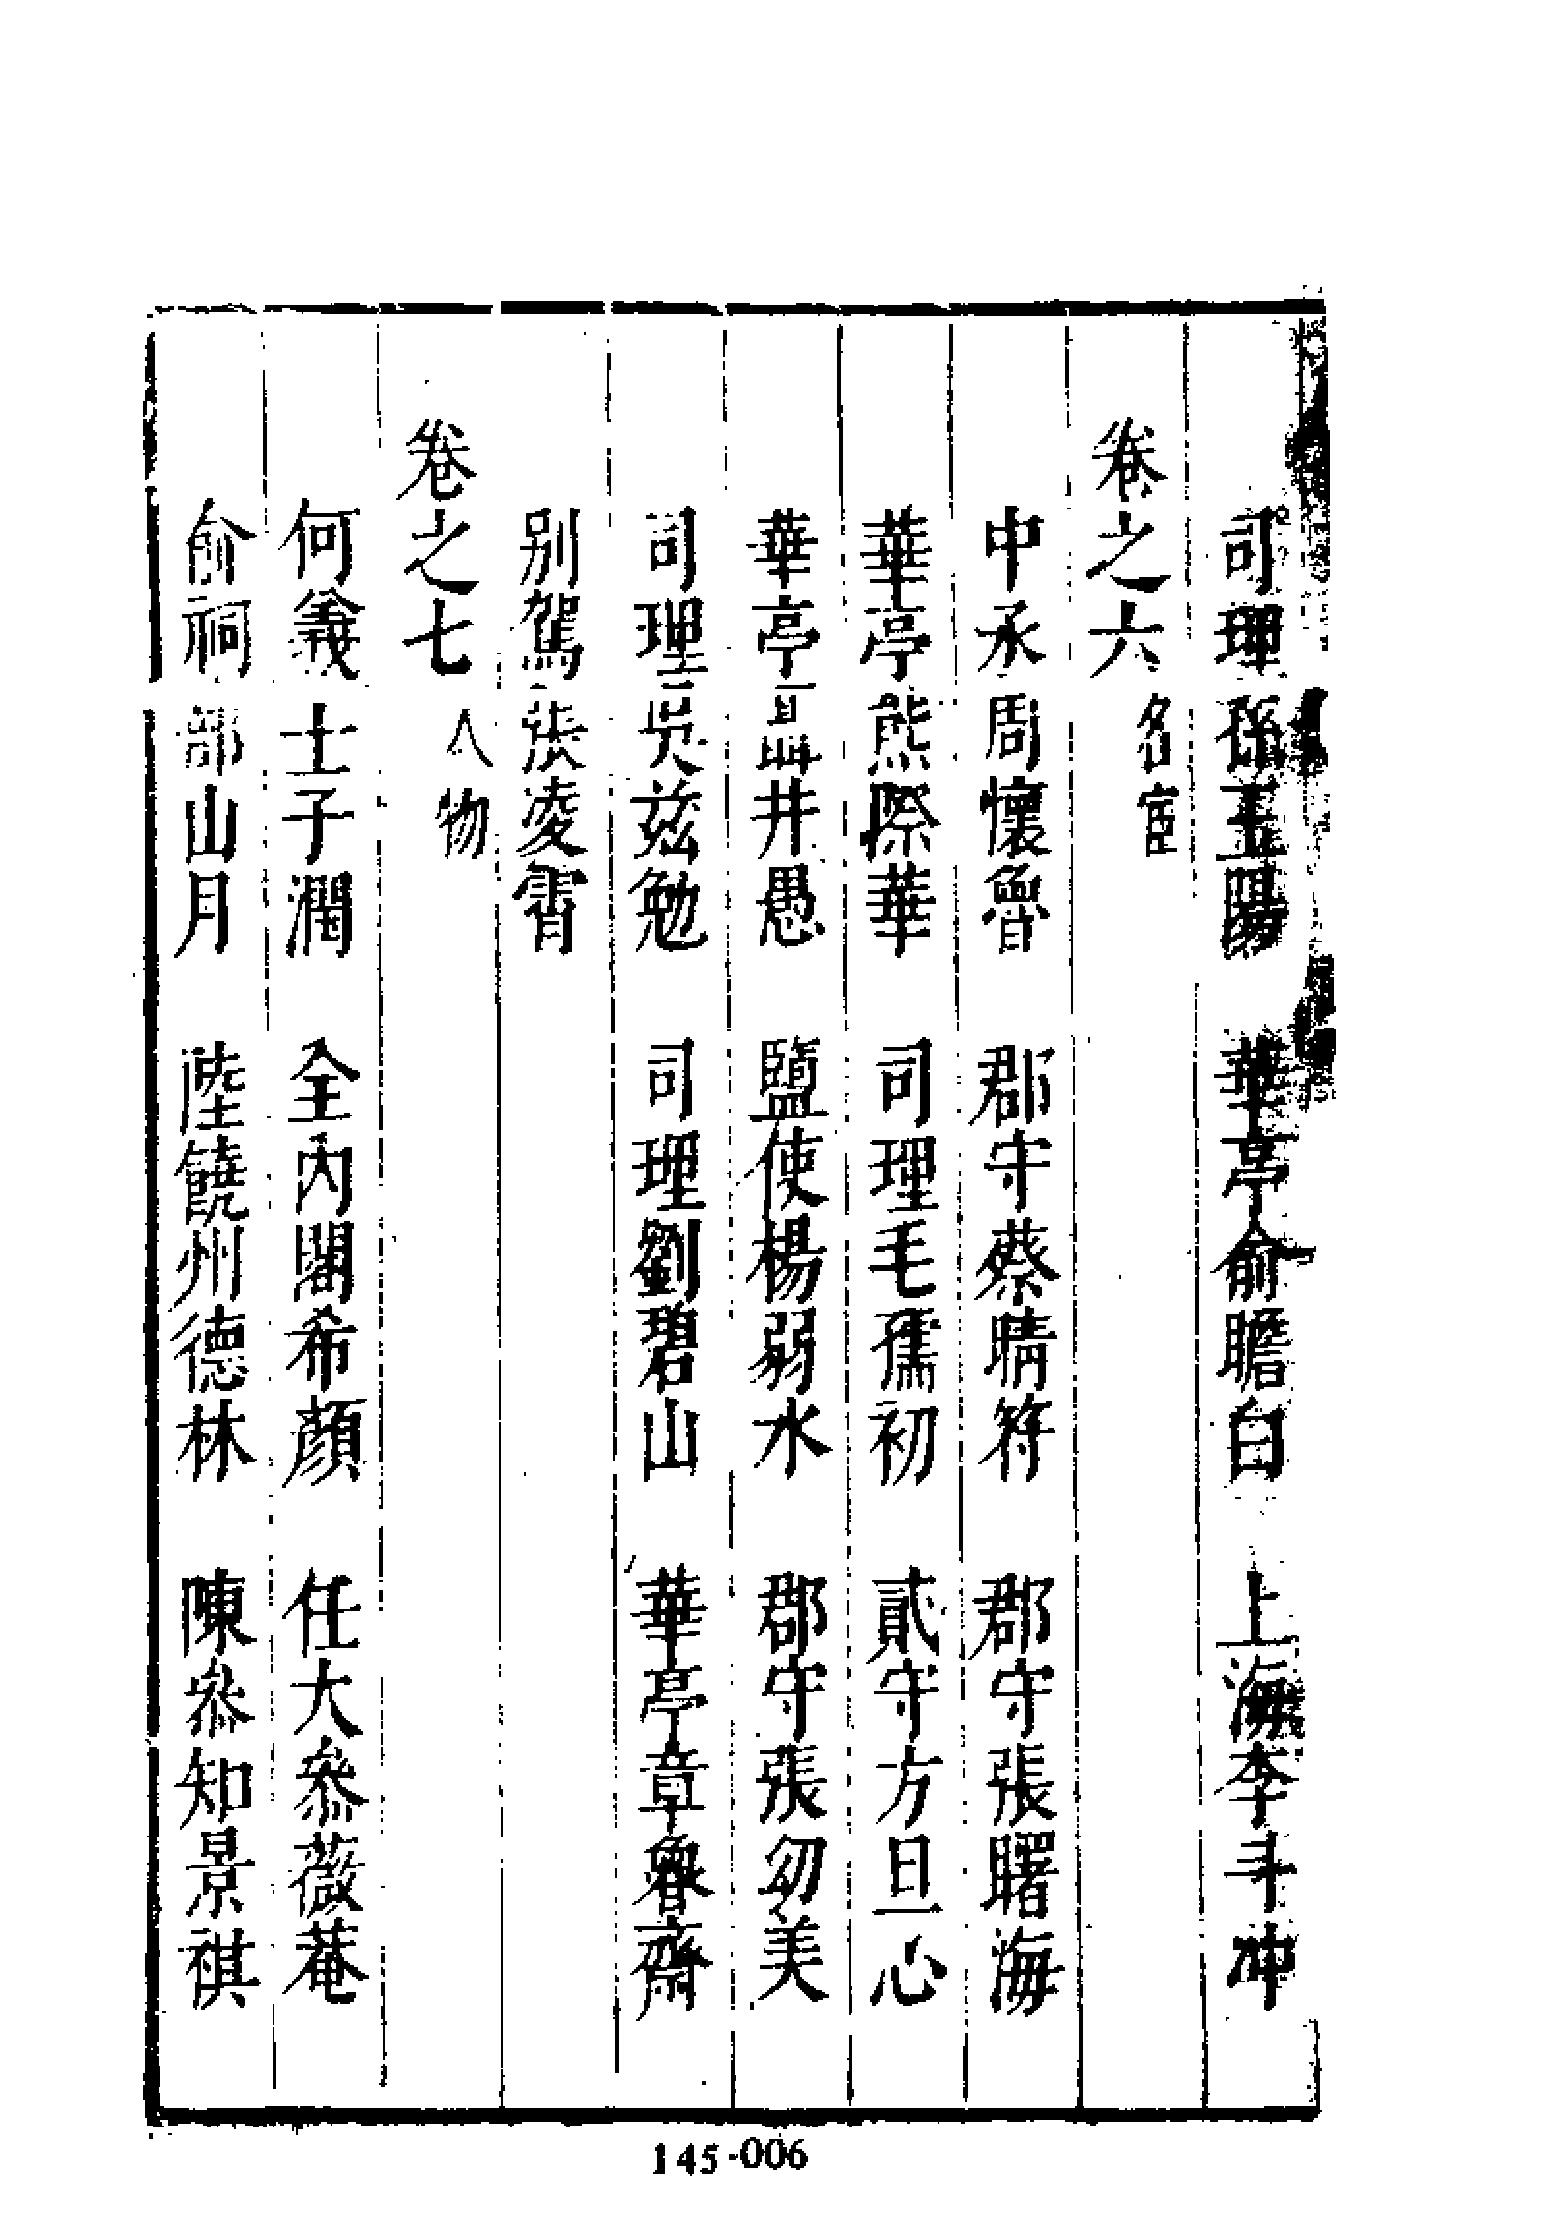 司理孫玉陽　華亭俞瞻白　上海李斗冲
卷之六　名宦
中丞周懷魯　郡守蔡晴符　郡守張曙海
華亭熊際華　司理毛孺初　貳守方旦心
華亭聶井愚　鹽使楊弱水　郡守張勿美
司理吳茲勉　司理劉碧山　華亭章魯齋
别駕張凌霄
卷之七　人物
何義士子潤　全內閣希顏　任大叅薇菴
俞祠部山月　陸饒州德林　陳叅知景祺
145-006